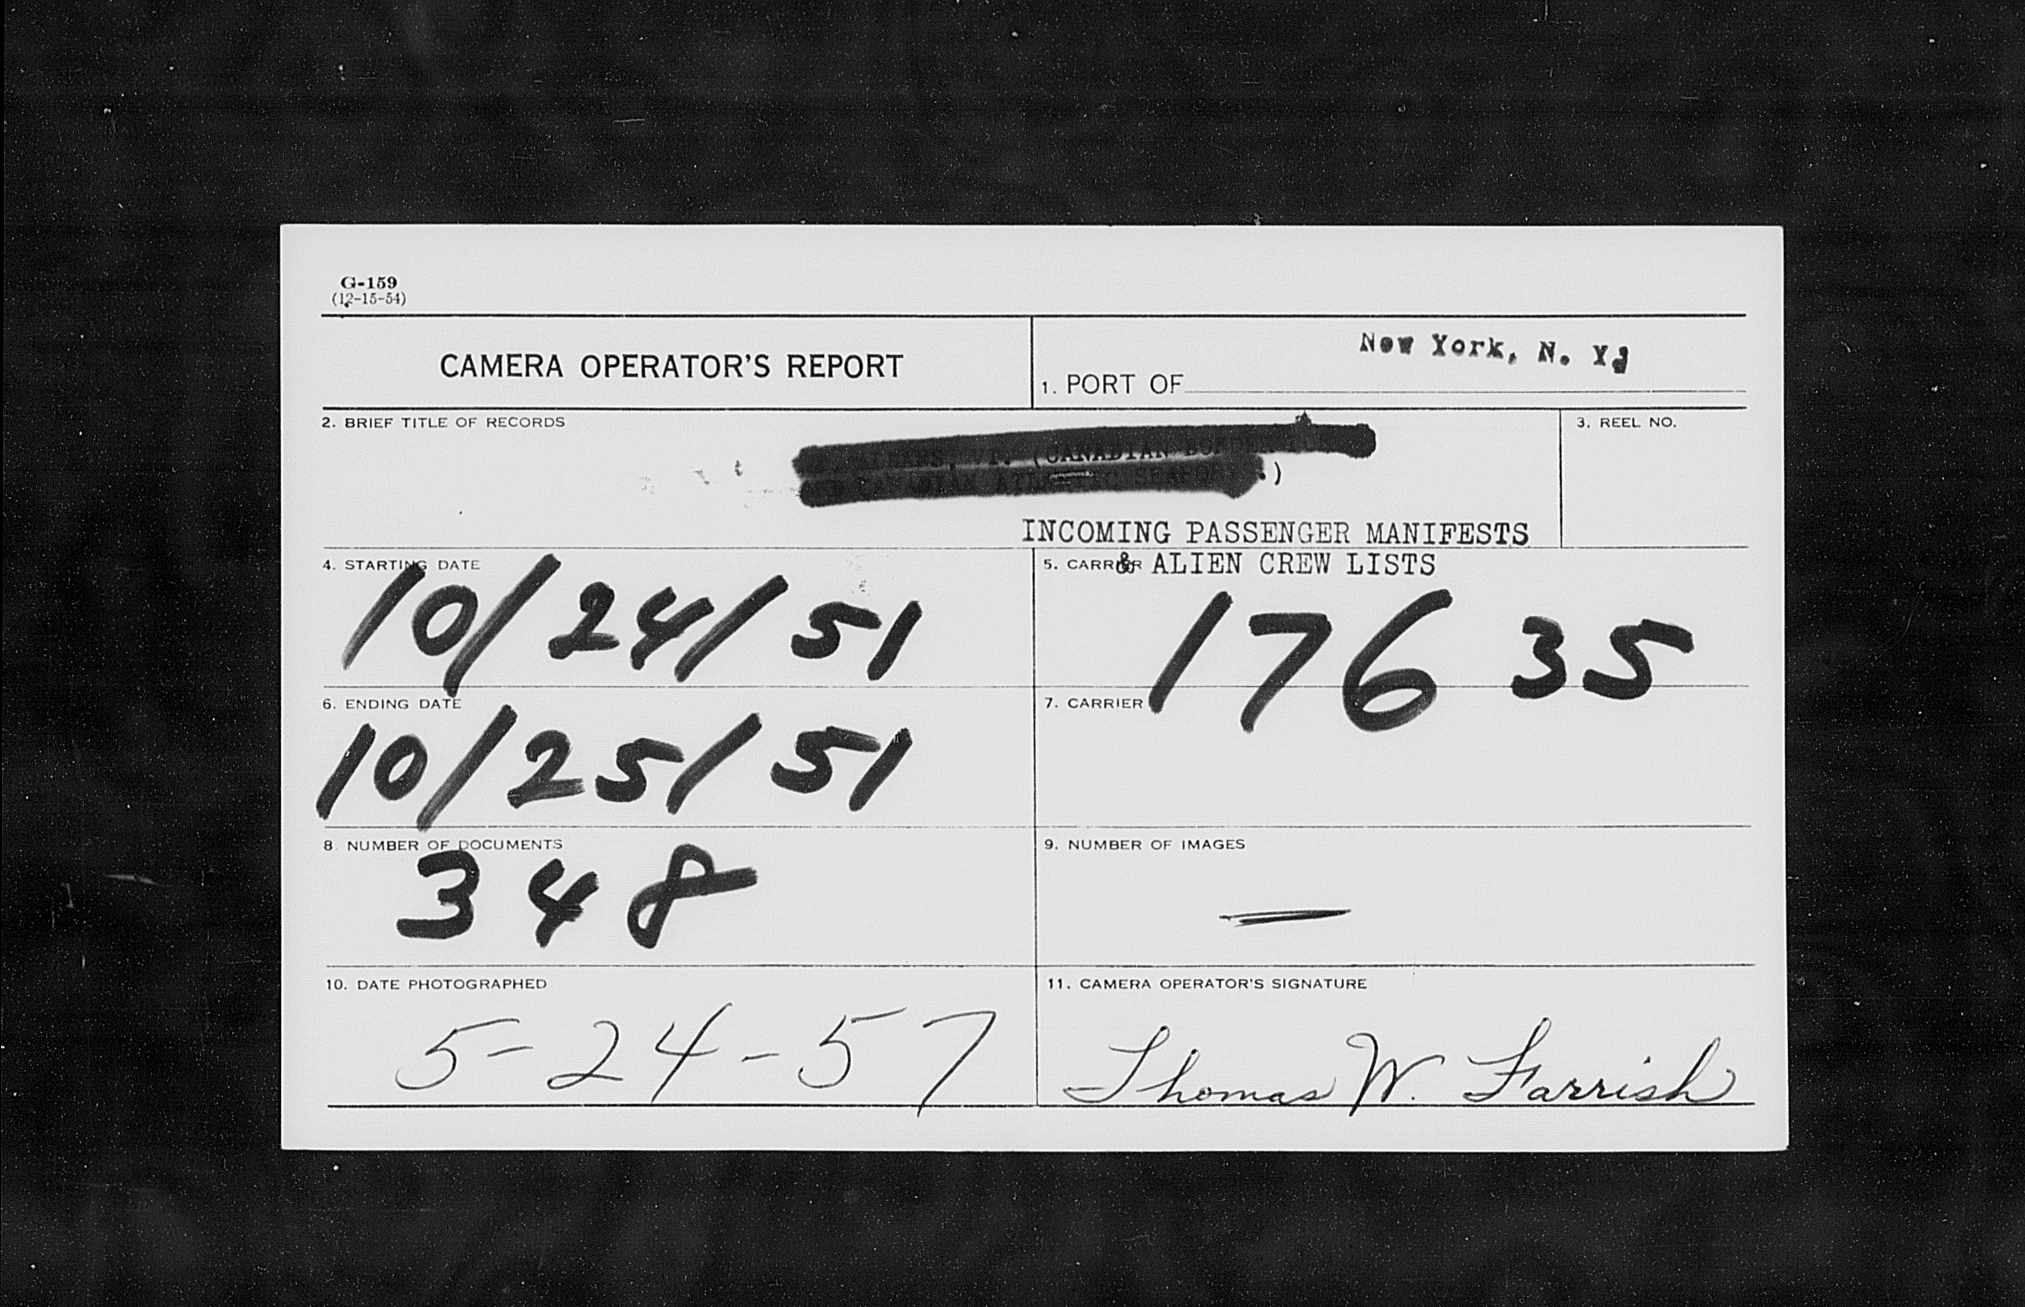 G-159
(12-15-54)
CAMERA OPERATOR'S REPORT
1. PORT OF New York, N. Y.
2. BRIEF TITLE OF RECORDS
3. REEL NO.
(CANADIAN
CANADIAN ATLANTIC SEAPORTS.)
INCOMING PASSENGER MANIFESTS
& ALIEN CREW LISTS
4. STARTING DATE
10/24/51
5. CARRIER
17635
6. ENDING DATE
10/25/51
7. CARRIER
8. NUMBER OF DOCUMENTS
348
9. NUMBER OF IMAGES
—
10. DATE PHOTOGRAPHED
5-24-57
11. CAMERA OPERATOR'S SIGNATURE
Thomas W. Farrish